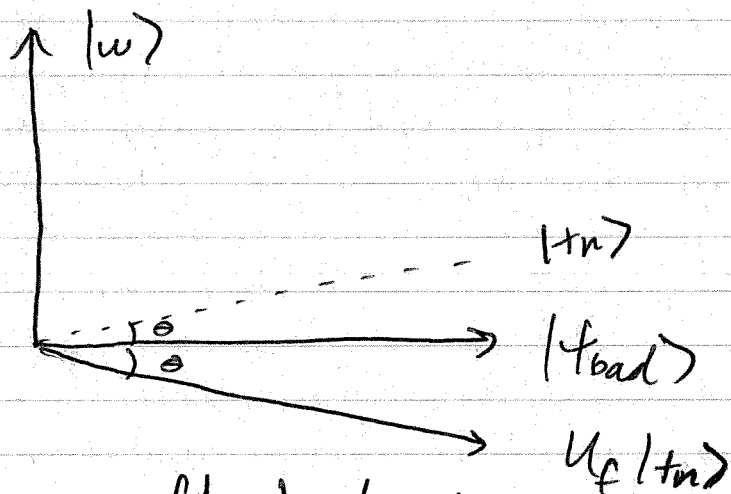 |w⟩
|+n⟩
θ
|+bad⟩
θ
U_f |+n⟩